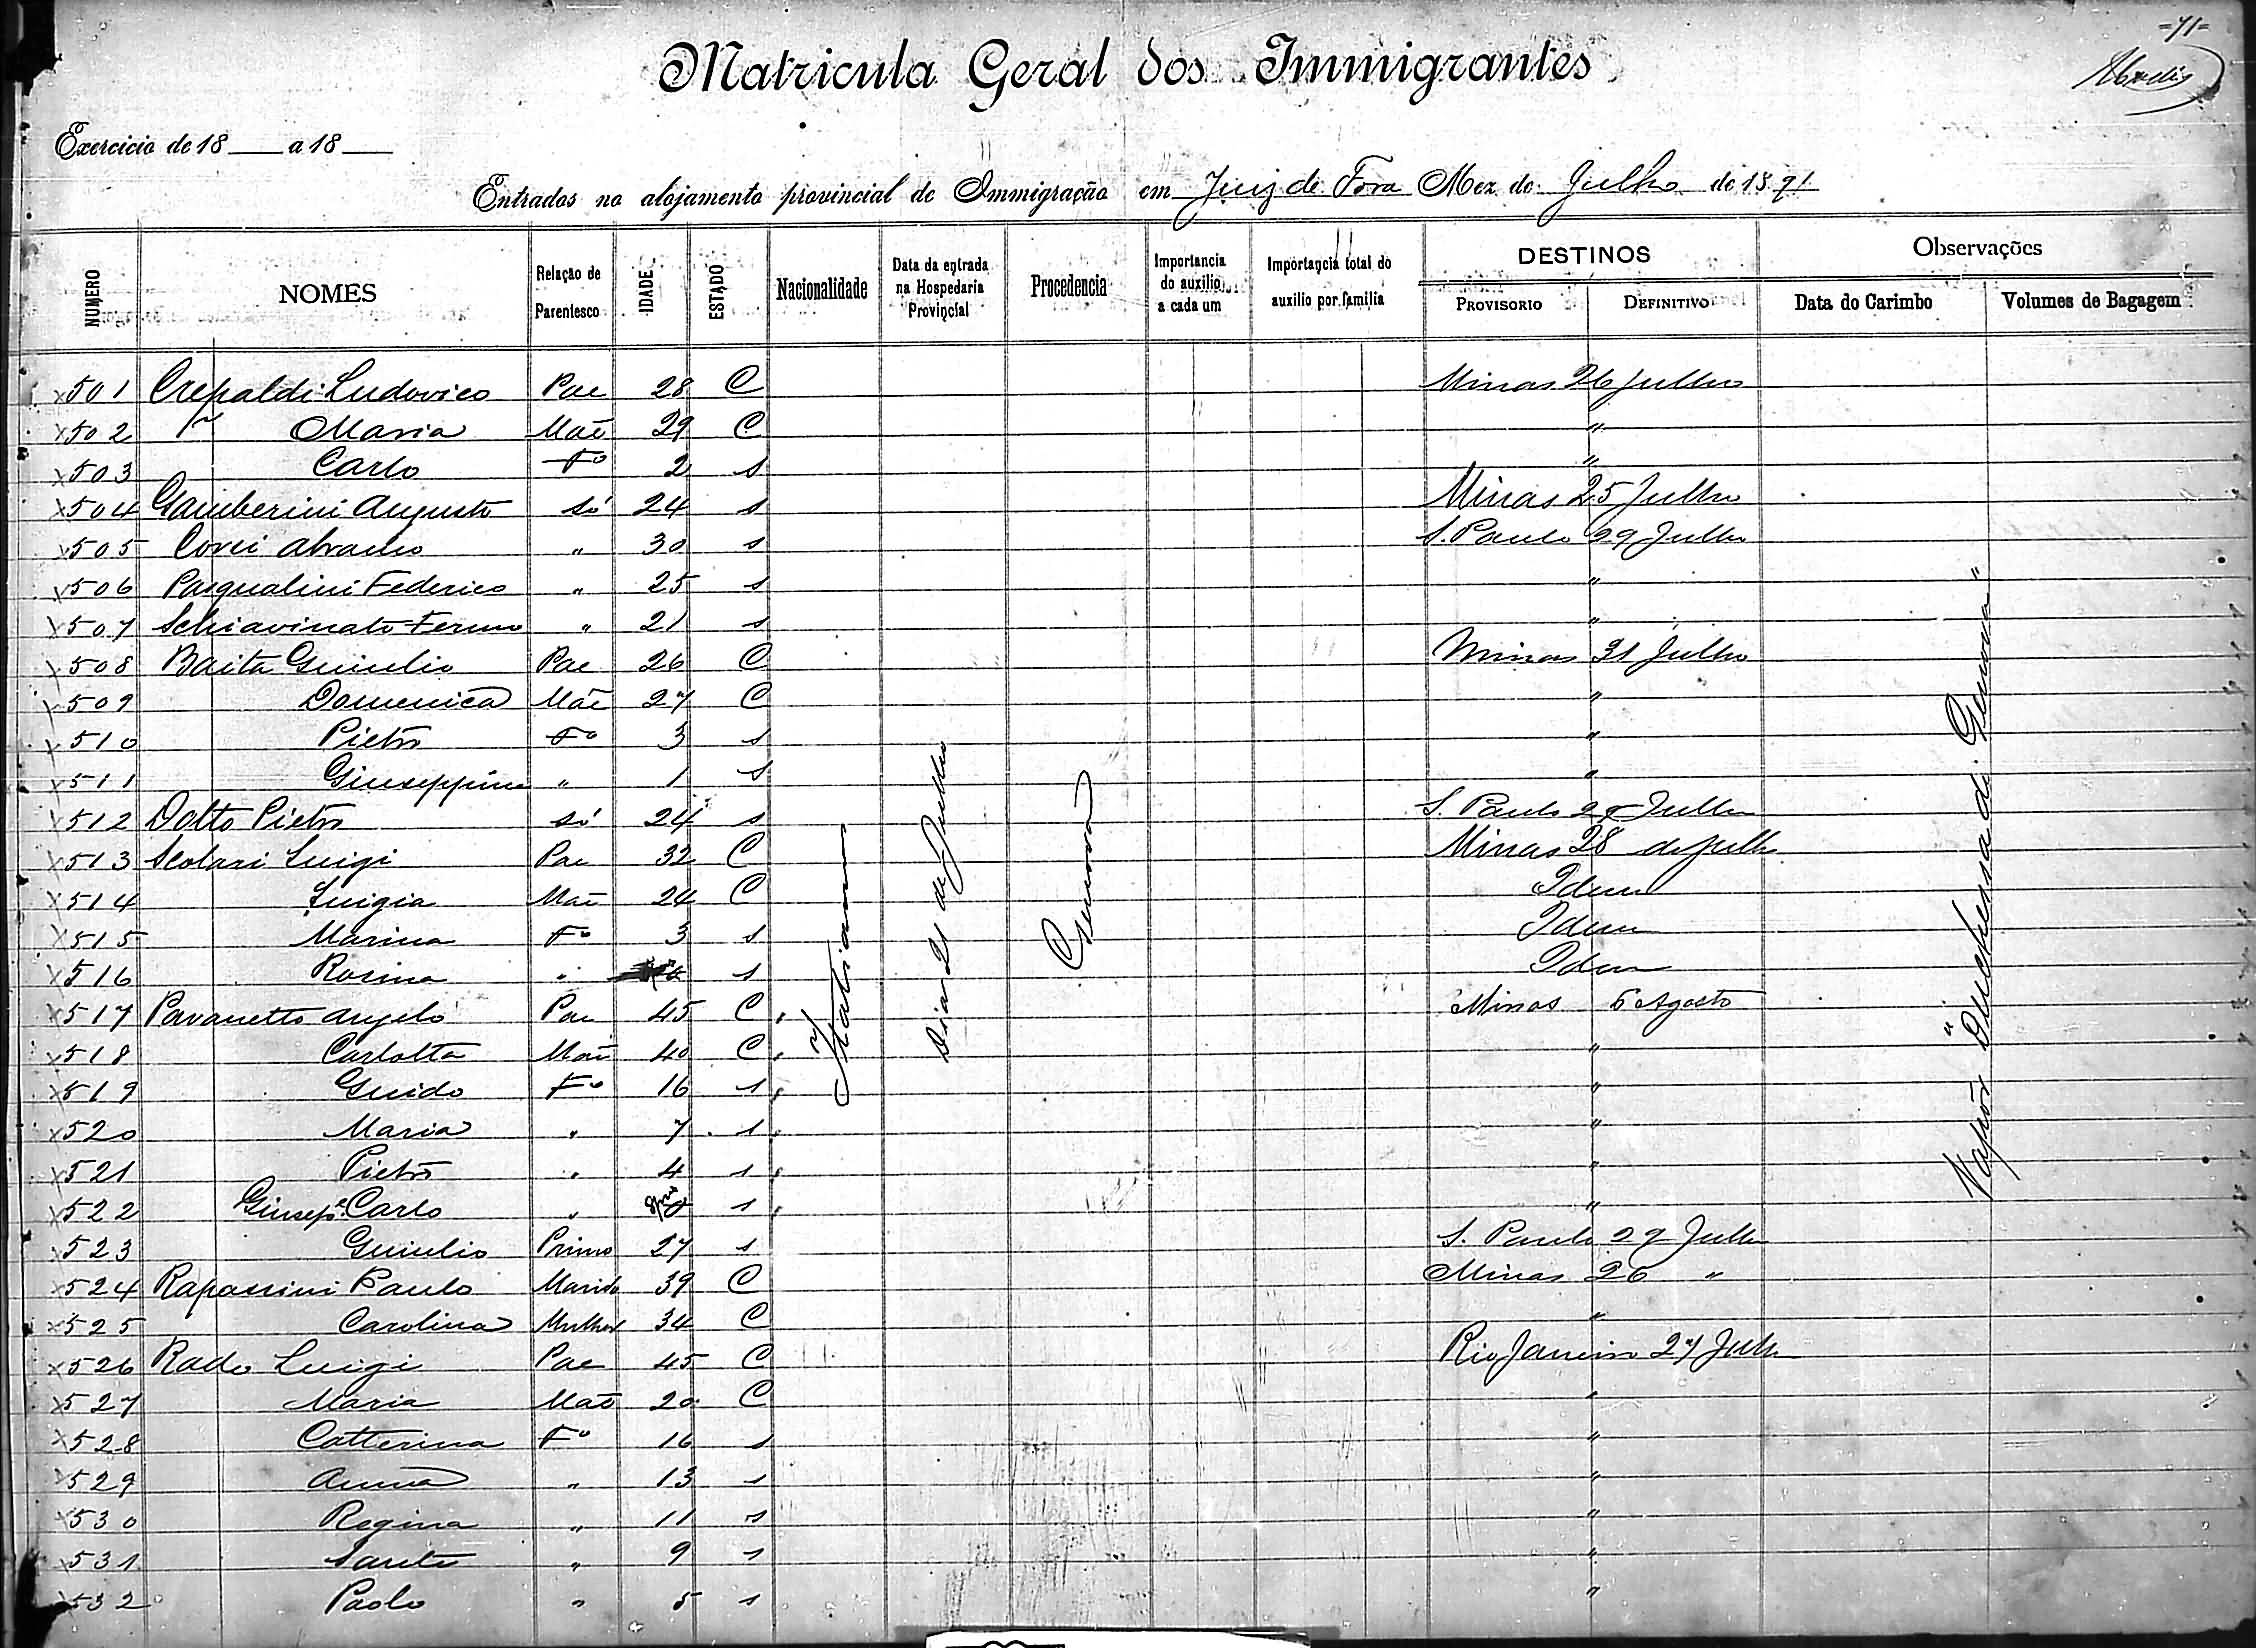 =71=
Matricula Geral dos Immigrantes
Exercicio de 18 a 18
Entrados no alojamento provincial de Immigração em Juiz de Fora Mez de Julho de 1891
NUMERO NOMES Relação de Parentesco IDADE ESTADO Nacionalidade Data da entrada na Hospedaria Provincial Procedencia Importancia do auxilio a cada um Importancia total do auxilio por familia DESTINOS PROVISORIO DEFINITIVO Observações Data do Carimbo Volumes de Bagagem
501 Crepaldi Ludovico Pae 28 C Minas 26 Julho
502 " Maria Mãe 29 C "
503 Carlo Fo 2 s "
504 Gamberini Augusto só 24 s Minas 25 Julho
505 Corci Abramo " 30 s S. Paulo 29 Julho
506 Pasqualini Federico " 25 s "
507 Schiavinato Fermo " 21 s "
508 Baita Guiulio Pae 26 C Minas 31 Julho
509 Domenica Mãe 27 C "
510 Pietro Fo 3 s "
511 Giuseppina " 1 s "
512 Dolto Pietro só 24 s S. Paulo Julho
513 Scolari Luigi Pae 32 C Minas 28 de Julho
514 Luigia Mãe 24 C Idem
515 Marina Fo 3 s Idem
516 Rosina " s Idem
517 Pavanetto Angelo Pae 45 C Minas 6 Agosto
518 Carlotta Mãe 40 C "
519 Guido Fo 16 s "
520 Maria " 7 s "
521 Pietro " 4 s "
522 Giusep.e Carlo " 8ms s "
523 Guiulio Primo 27 s S. Paulo 29 Julho
524 Rapassini Paulo Marido 39 C Minas 26 "
525 Carolina Mulher 34 C "
526 Rado Luigi Pae 45 C Rio Janeiro 27 Julho
527 Maria Mãe 20 C "
528 Catterina Fo 16 s "
529 Anna " 13 s "
530 Regina " 11 s "
531 Sante " 9 s "
532 Paolo " 5 s "
Italiana
Dia 21 de Julho
Genova
Vapor "Duchessa di Genova"